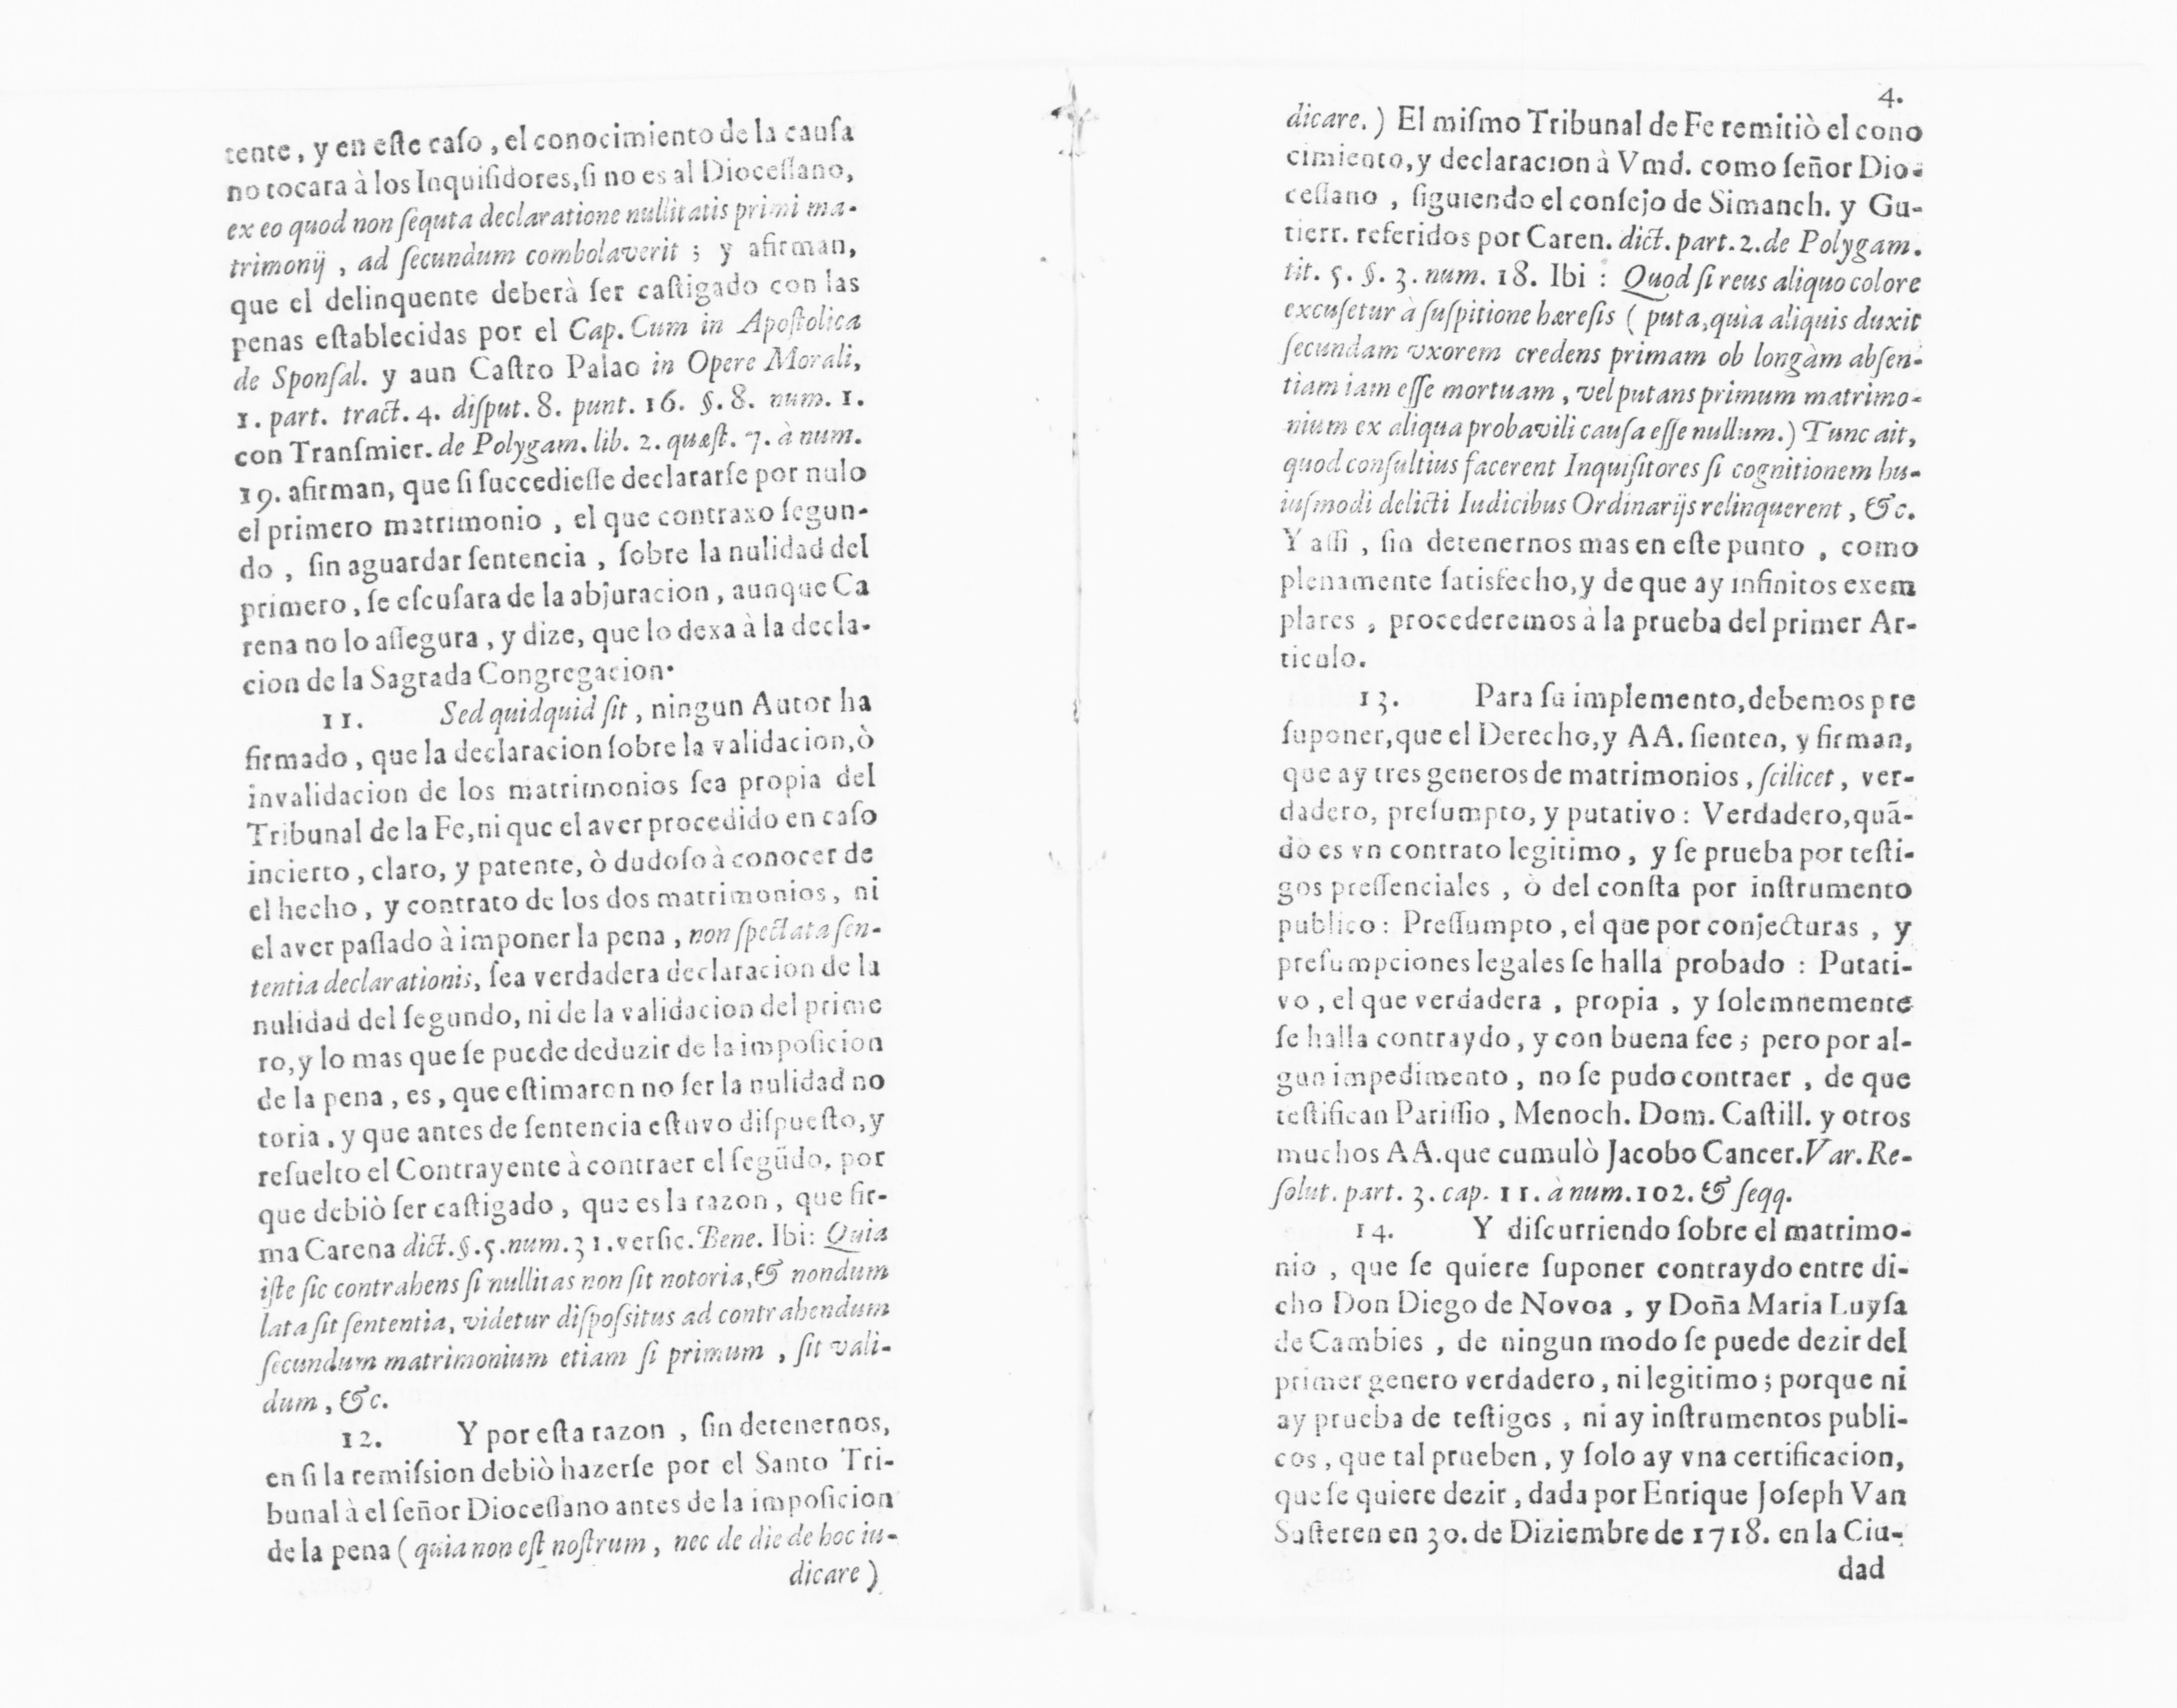 tente, y en eſte caſo, el conocimiento de la cauſa
no tocara à los Inquiſidores, ſi no es al Dioceſſano,
ex eo quod non ſequta declaratione nullitatis primi ma-
trimonij, ad ſecundum combolaverit; y afirman,
que el delinquente deberà ſer caſtigado con las
penas eſtablecidas por el Cap. Cum in Apoſtolica
de Sponſal. y aun Caſtro Palao in Opere Morali,
1. part. tract. 4. diſput. 8. punt. 16. §. 8. num. 1.
con Tranſmier. de Polygam. lib. 2. quæſt. 7. à num.
19. afirman, que ſi ſuccedieſſe declararſe por nulo
el primero matrimonio, el que contraxo ſegun-
do, ſin aguardar ſentencia, ſobre la nulidad del
primero, ſe eſcuſara de la abjuracion, aunque Ca
rena no lo aſſegura, y dize, que lo dexa à la decla-
cion de la Sagrada Congregacion.
11. Sed quidquid ſit, ningun Autor ha
firmado, que la declaracion ſobre la validacion, ò
invalidacion de los matrimonios ſea propia del
Tribunal de la Fe, ni que el aver procedido en caſo
incierto, claro, y patente, ò dudoſo à conocer de
el hecho, y contrato de los dos matrimonios, ni
el aver paſſado à imponer la pena, non ſpectata ſen-
tentia declarationis, ſea verdadera declaracion de la
nulidad del ſegundo, ni de la validacion del prime
ro, y lo mas que ſe puede deduzir de la impoſicion
de la pena, es, que eſtimaron no ſer la nulidad no
toria, y que antes de ſentencia eſtuvo diſpueſto, y
reſuelto el Contrayente à contraer el ſegūdo, por
que debiò ſer caſtigado, que es la razon, que fir-
ma Carena dict. §. 5. num. 31. verſic. Bene. Ibi: Quia
iſte ſic contrahens ſi nullitas non ſit notoria, & nondum
lata ſit ſententia, videtur diſpoſsitus ad contrahendum
ſecundum matrimonium etiam ſi primum, ſit vali-
dum, &c.
12. Y por eſta razon, ſin detenernos,
en ſi la remiſsion debiò hazerſe por el Santo Tri-
bunal à el ſeñor Dioceſſano antes de la impoſicion
de la pena (quia non eſt noſtrum, nec de die de hoc iu-
dicare)
4.
dicare.) El miſmo Tribunal de Fe remitiò el cono
cimiento, y declaracion à Vmd. como ſeñor Dio-
ceſſano, ſiguiendo el conſejo de Simanch. y Gu-
tierr. referidos por Caren. dict. part. 2. de Polygam.
tit. 5. §. 3. num. 18. Ibi: Quod ſi reus aliquo colore
excuſetur à ſuſpitione hæreſis (puta, quia aliquis duxit
ſecundam vxorem credens primam ob longàm abſen-
tiam iam eſſe mortuam, vel putans primum matrimo-
nium ex aliqua probavili cauſa eſſe nullum.) Tunc ait,
quod conſultius facerent Inquiſitores ſi cognitionem hu-
iuſmodi delicti Iudicibus Ordinarijs relinquerent, &c.
Y aſſi, ſin detenernos mas en eſte punto, como
plenamente ſatisfecho, y de que ay infinitos exem
plares, procederemos à la prueba del primer Ar-
ticulo.
13. Para ſu implemento, debemos pre
ſuponer, que el Derecho, y AA. ſienten, y firman,
que ay tres generos de matrimonios, ſcilicet, ver-
dadero, preſumpto, y putativo: Verdadero, quā-
do es vn contrato legitimo, y ſe prueba por teſti-
gos preſſenciales, ò del conſta por inſtrumento
publico: Preſſumpto, el que por conjecturas, y
preſumpciones legales ſe halla probado: Putati-
vo, el que verdadera, propia, y ſolemnemente
ſe halla contraydo, y con buena fee; pero por al-
gun impedimento, no ſe pudo contraer, de que
teſtifican Pariſſio, Menoch. Dom. Caſtill. y otros
muchos AA. que cumulò Jacobo Cancer. Var. Re-
ſolut. part. 3. cap. 11. à num. 102. & ſeqq.
14. Y diſcurriendo ſobre el matrimo-
nio, que ſe quiere ſuponer contraydo entre di-
cho Don Diego de Novoa, y Doña Maria Luyſa
de Cambies, de ningun modo ſe puede dezir del
primer genero verdadero, ni legitimo; porque ni
ay prueba de teſtigos, ni ay inſtrumentos publi-
cos, que tal prueben, y ſolo ay vna certificacion,
que ſe quiere dezir, dada por Enrique Joſeph Van
Suſteren en 30. de Diziembre de 1718. en la Ciu-
dad